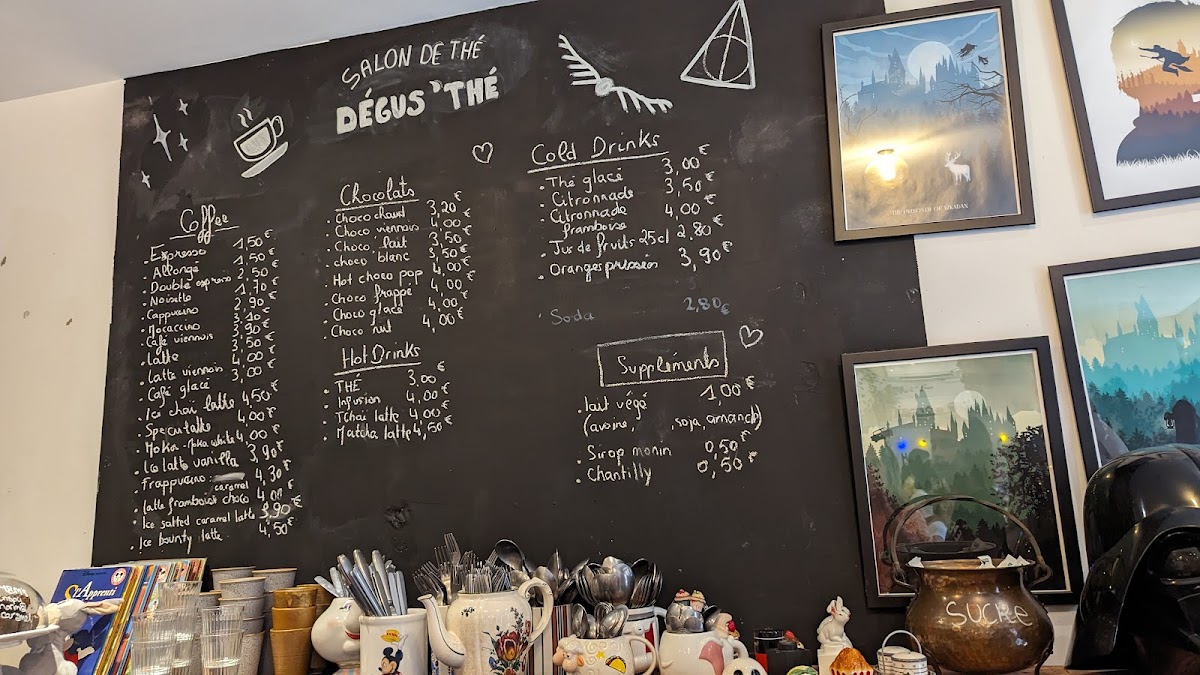 SALON DE THÉ
DÉGUS'THÉ
Coffee
. Expresso 1,50€
. Allongé 1,50€
. Double expresso 2,50€
. Noisette 1,70€
. Cappuccino 2,90€
. Mocaccino 3,10€
. Café viennois 3,90€
. Latte 3,50€
. Latte viennois 4,00€
. Café glacé 3,00€
. Ice chai latte 4,50€
. Speculatte 4,00€
. Moka - Moka white 4,00€
. Ice latte vanilla 3,90€
. Frappuccino: caramel 4,30€
. latte framboise choco 4,00€
. Ice salted caramel latte 3,90€
. Ice bounty latte 4,50€
Chocolats
. Choco chaud 3,20€
. Choco viennois 4,00€
. Choco lait 3,50€
. choco blanc 3,50€
. Hot choco pop 4,00€
. Choco frappé 4,00€
. Choco glacé 4,00€
. Choco nut 4,00€
Hot Drinks
. THÉ 3,00€
. Infusion 4,00€
. TChaï latte 4,00€
. Matcha latte 4,50€
Cold Drinks
. Thé glacé 3,00€
. Citronnade 3,50€
. Citronnade framboise 4,00€
. Jus de fruits 25cl 2,80€
. Oranges pressées 3,90€
. Soda 2,80€
Suppléments
. lait végé 1,00€
(avoine, soja, amande)
. Sirop monin 0,50€
. Chantilly 0,50€
THE PRISONER OF AZKABAN
L'Apprenti
SUCRE